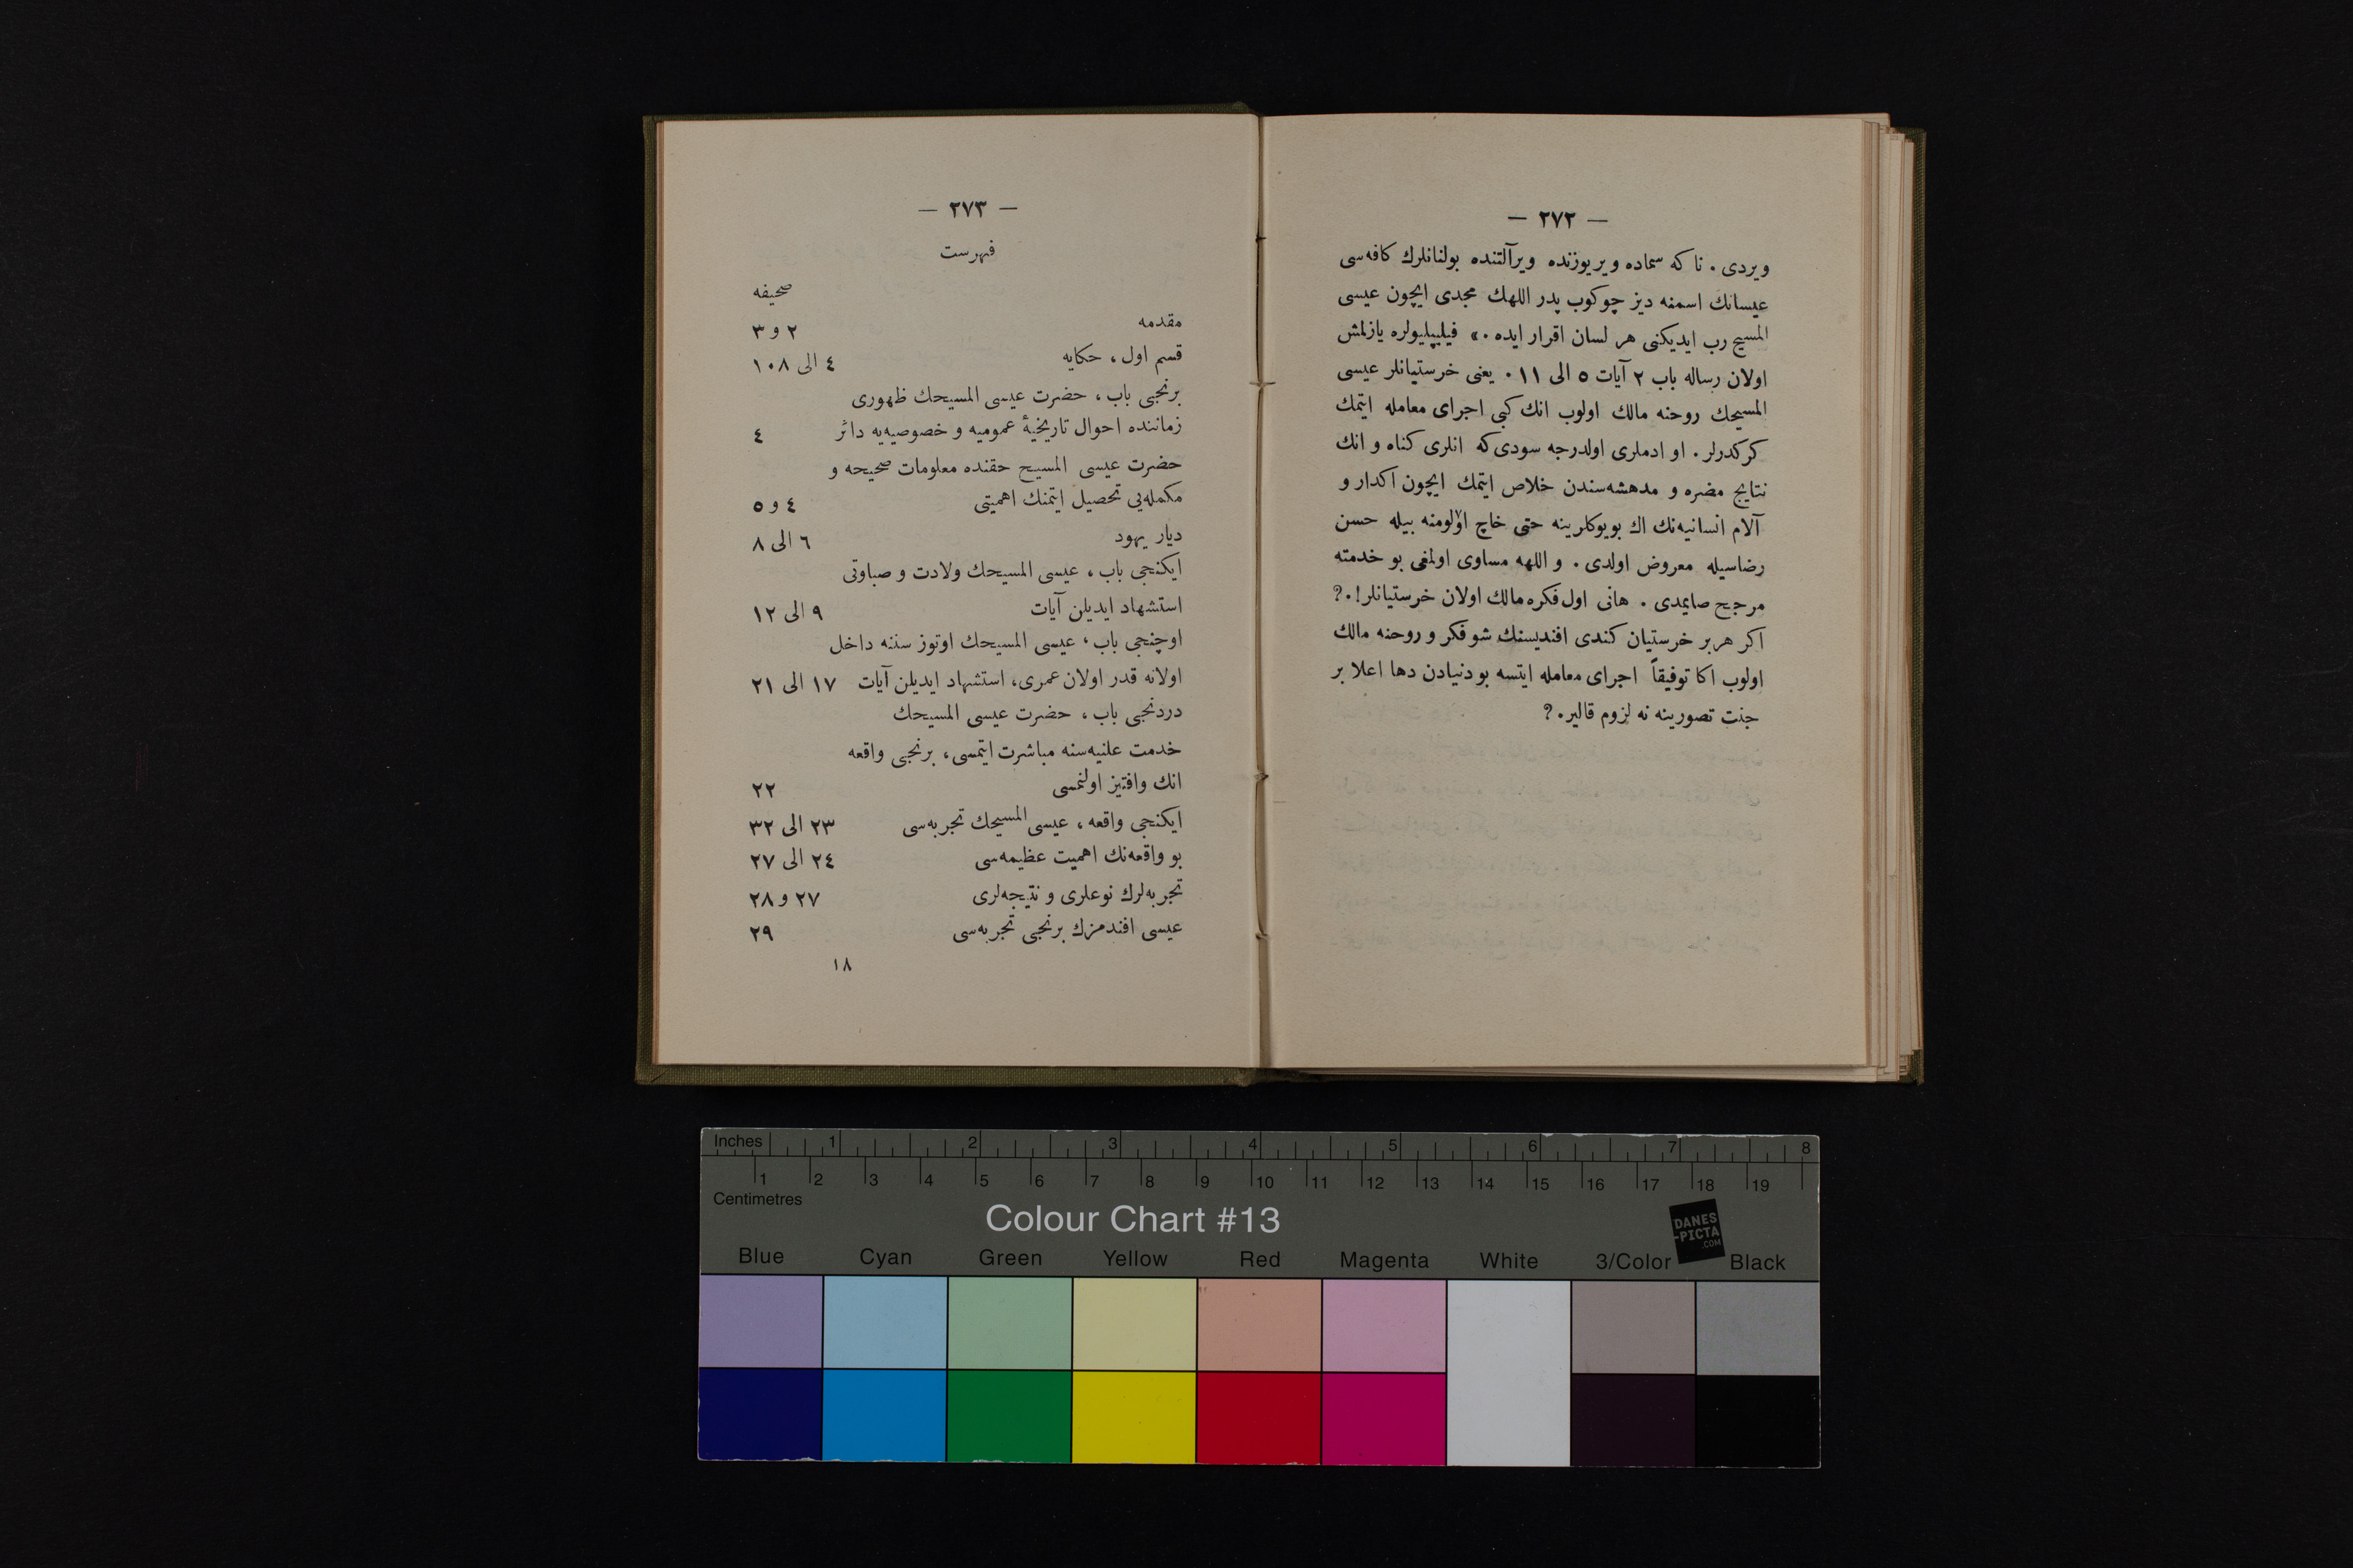 — ٢٧٢ —
ویردی . تا که سماده ویریوزنده ویرآلتنده بولنانلرك کافه‌سی
عیسانك اسمنه دیز چوکوب پدر اللهك مجدی ایچون عیسی
المسیح رب ایدیکنی هر لسان اقرار ایده .» فیلیپلیولره یازلمش
اولان رساله باب ٢ آیات ٥ الی ١١ . یعنی خرستیانلر عیسی
المسیحك روحنه مالك اولوب انك کبی اجرای معامله ایتمك
کرکدرلر . او ادملری اولدرجه سودی که انلری کناه و انك
نتایج مضره و مدهشه‌سندن خلاص ایتمك ایچون اکدار و
آلام انسانیه‌نك اك بویوکلرینه حتی خاچ اولومنه بیله حسن
رضاسیله معروض اولدی . و اللهه مساوی اولمغی بو خدمته
مرجح صایمدی . هانی اول فکره مالك اولان خرستیانلر!.؟
اکر هربر خرستیان کندی افندیسنك شو فکر و روحنه مالك
اولوب اکا توفیقاً اجرای معامله ایتسه بو دنیادن دها اعلا بر
جنت تصورینه نه لزوم قالیر.؟
— ٢٧٣ —
فهرست
صحیفه
مقدمه ٢ و ٣
قسم اول ، حکایه ٤ الی ١٠٨
برنجی باب ، حضرت عیسی المسیحك ظهوری
زماننده احوال تاریخیهٔ عمومیه و خصوصیه‌یه دائر ٤
حضرت عیسی المسیح حقنده معلومات صحیحه و
مکمله‌یی تحصیل ایتمنك اهمیتی ٤ و ٥
دیار یهود ٦ الی ٨
ایکنجی باب ، عیسی المسیحك ولادت و صباوتی
استشهاد ایدیلن آیات ٩ الی ١٢
اوچنجی باب ، عیسی المسیحك اوتوز سننه داخل
اولانه قدر اولان عمری، استشهاد ایدیلن آیات ١٧ الی ٢١
دردنجی باب ، حضرت عیسی المسیحك
خدمت علنیه‌سنه مباشرت ایتمسی ، برنجی واقعه
انك وافتیز اولنمسی ٢٢
ایکنجی واقعه ، عیسی المسیحك تجربه‌سی ٢٣ الی ٣٢
بو واقعه‌نك اهمیت عظیمه‌سی ٢٤ الی ٢٧
تجربه‌لرك نوعلری و نتیجه‌لری ٢٧ و ٢٨
عیسی افندمزك برنجی تجربه‌سی ٢٩
١٨
Inches 1 2 3 4 5 6 7 8
1 2 3 4 5 6 7 8 9 10 11 12 13 14 15 16 17 18 19
Centimetres
Colour Chart #13
DANES
-PICTA
.COM
Blue Cyan Green Yellow Red Magenta White 3/Color Black